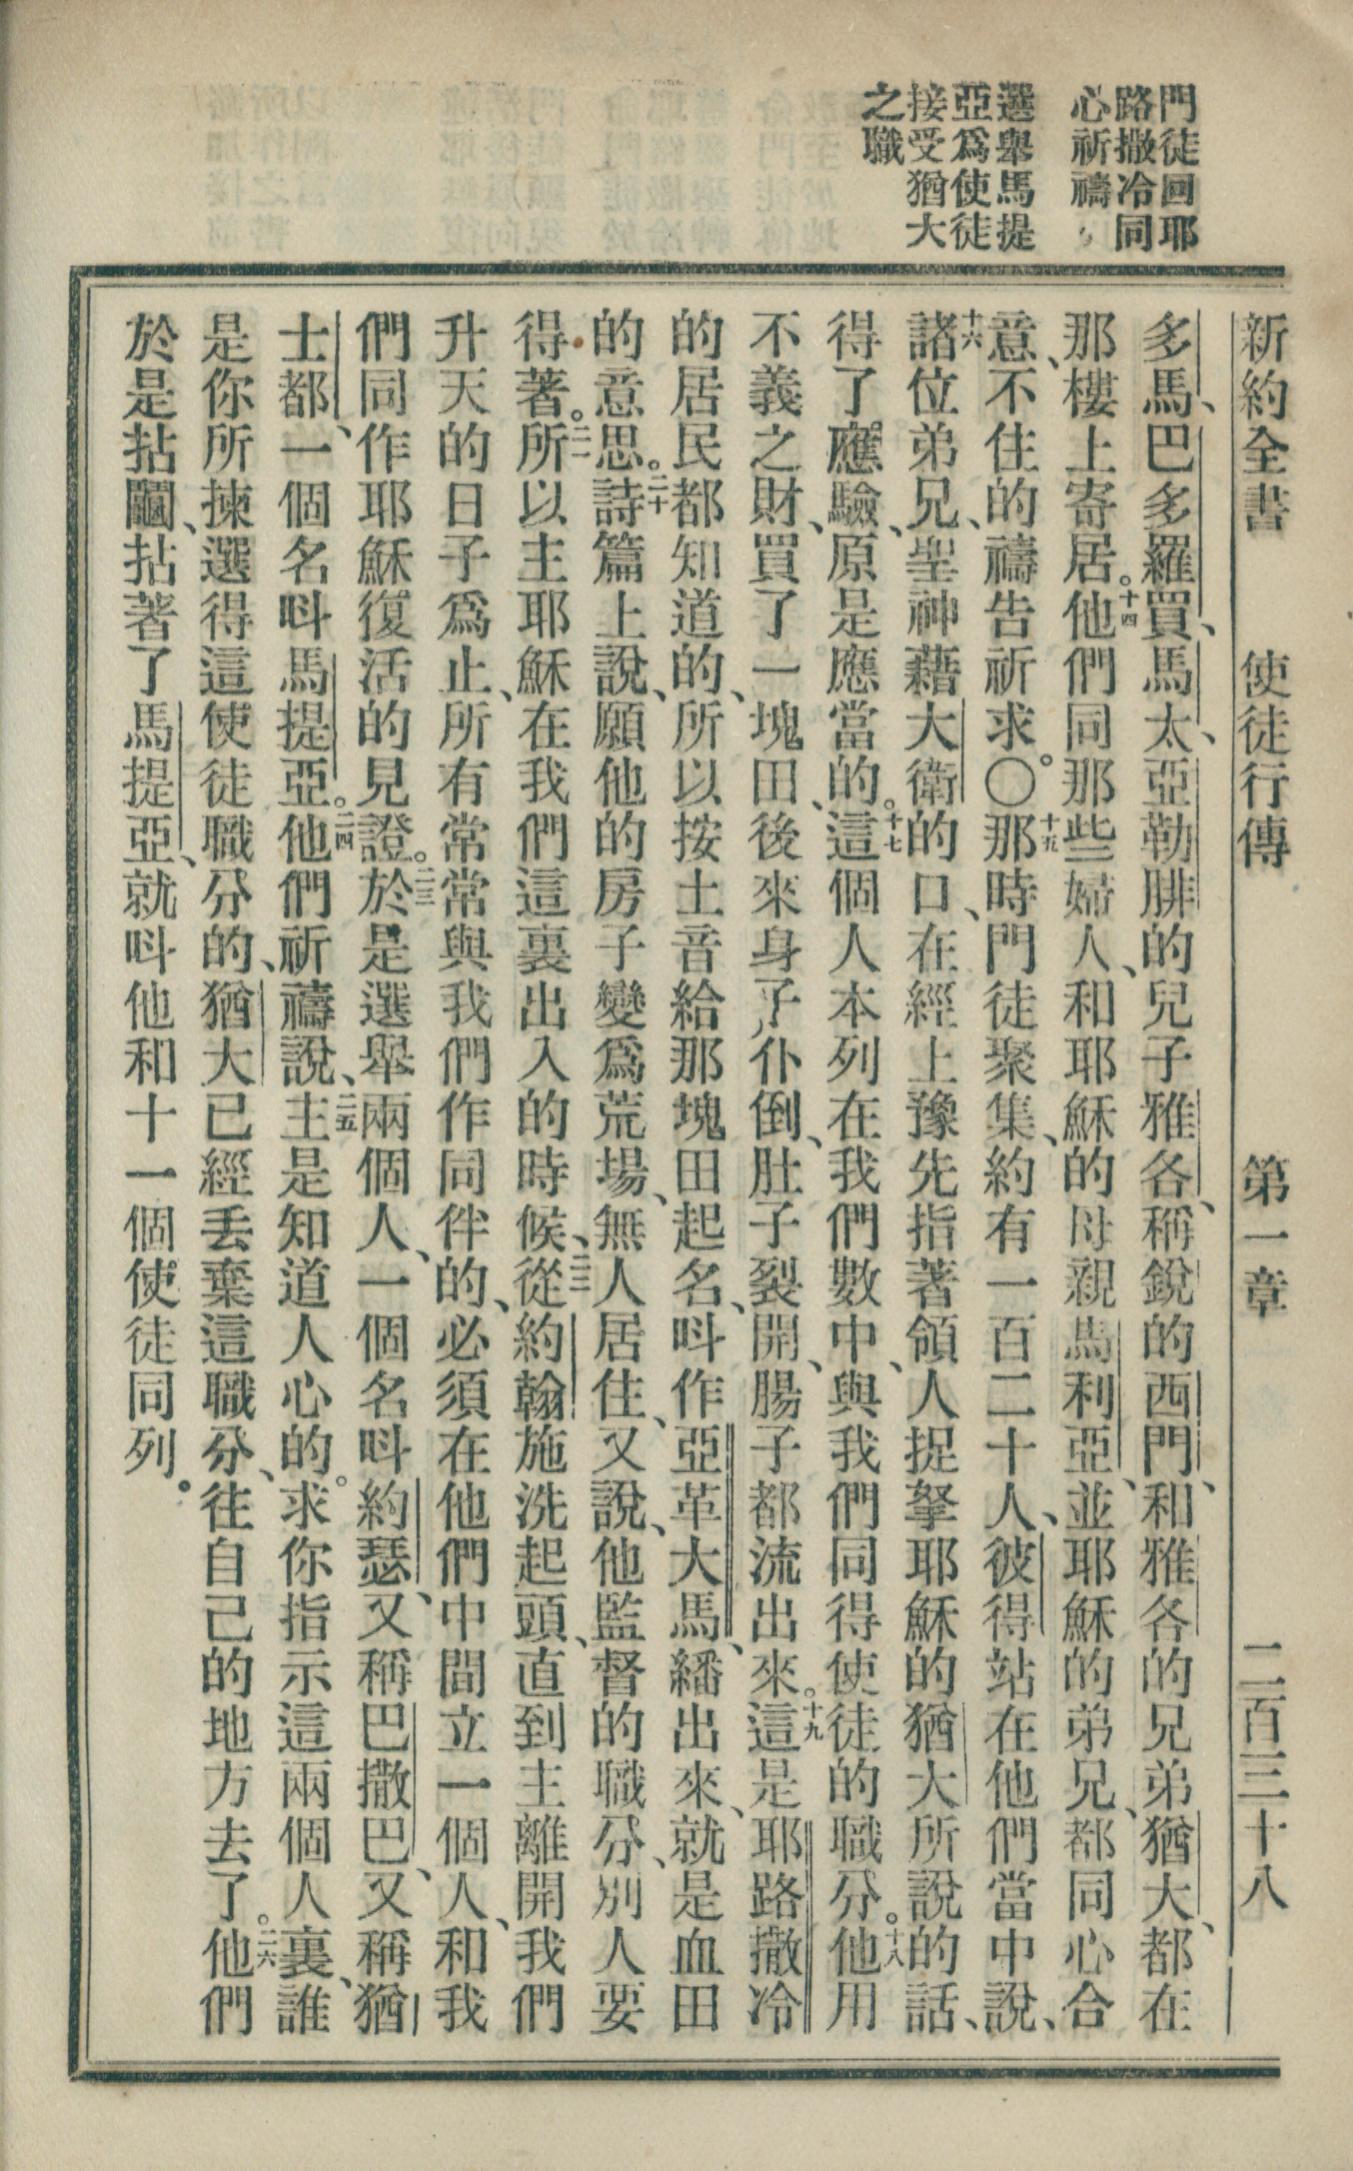 門徒回耶
路撒冷同
心祈禱
選舉馬提
亞爲使徒
接受猶大
之職
新約全書 使徒行傳 第一章 二百三十八
多馬、巴多羅買、馬太、亞勒腓的兒子雅各、稱銳的西門、和雅各的兄弟猶大、都在
那樓上寄居。十四他們同那些婦人、和耶穌的母親馬利亞、並耶穌的弟兄、都同心合
意、不住的禱告祈求。〇十五那時門徒聚集、約有一百二十人、彼得站在他們當中說、
十六諸位弟兄、聖神藉大衛的口、在經上豫先指著領人捉拏耶穌的猶大所說的話、
得了應驗、原是應當的。十七這個人本列在我們數中、與我們同得使徒的職分。十八他用
不義之財、買了一塊田、後來身子仆倒、肚子裂開、腸子都流出來。十九這是耶路撒冷
的居民都知道的、所以按土音給那塊田起名、呌作亞革大馬、繙出來、就是血田
的意思。二十詩篇上說、願他的房子變爲荒場、無人居住、又說、他監督的職分、別人要
得著。二一所以主耶穌在我們這裏出入的時候、二二從約翰施洗起頭、直到主離開我們
升天的日子爲止、所有常常與我們作同伴的、必須在他們中間立一個人、和我
們同作耶穌復活的見證。二三於是選舉兩個人、一個名呌約瑟、又稱巴撒巴、又稱猶
士都、一個名呌馬提亞。二四他們祈禱說、二五主是知道人心的。求你指示這兩個人裏、誰
是你所揀選得這使徒職分的、猶大已經丟棄這職分、往自己的地方去了。二六他們
於是拈鬮、拈著了馬提亞、就呌他和十一個使徒同列。